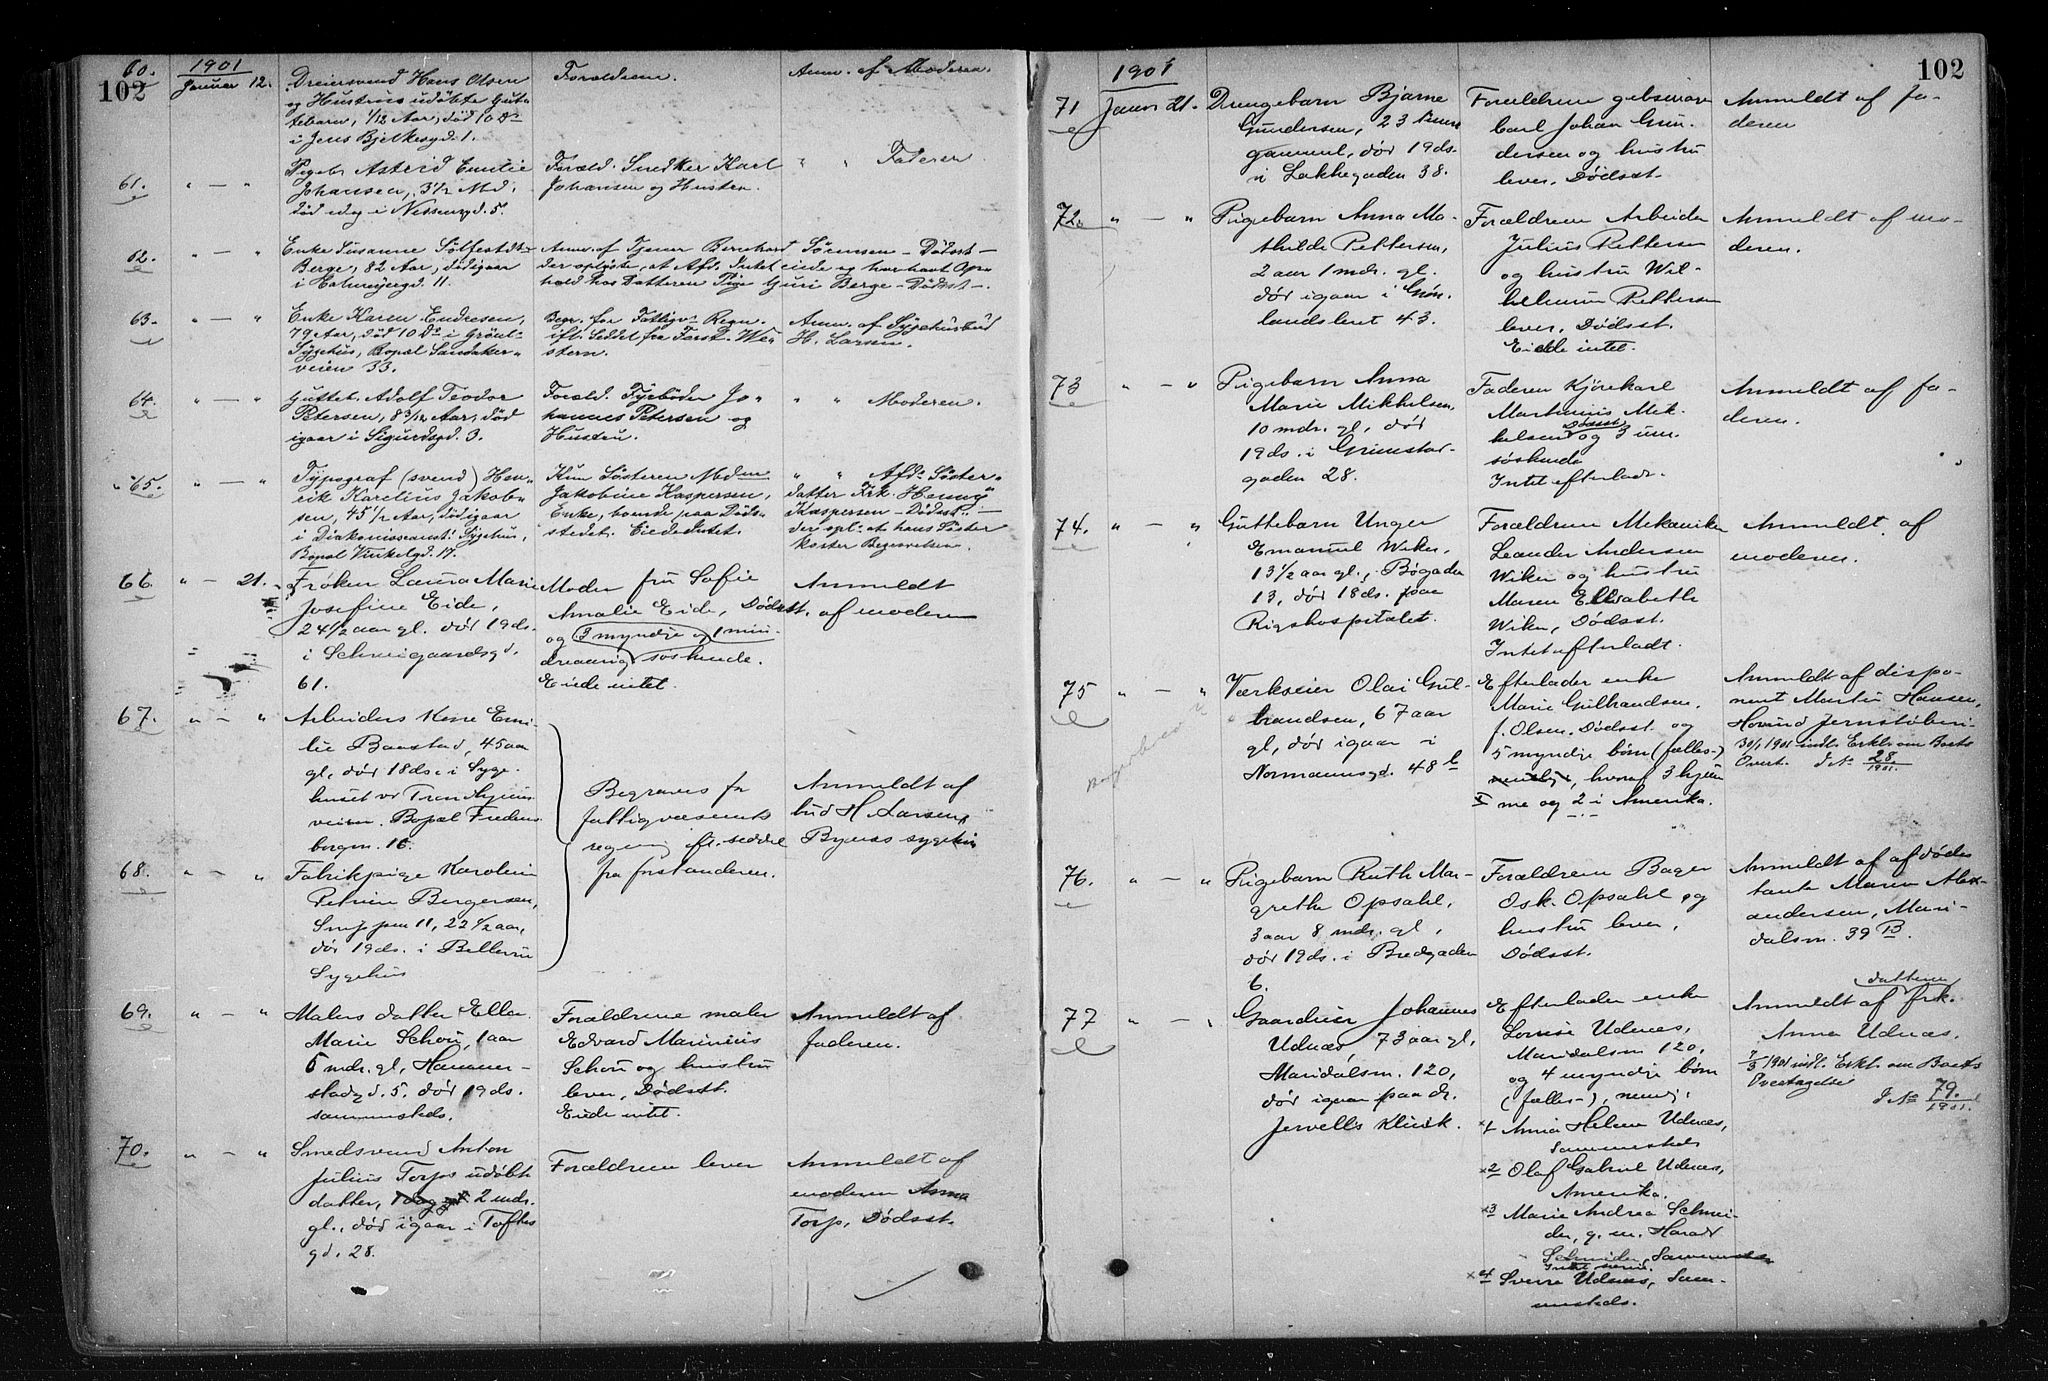 102
60.
1901
Januar 12.
Dreiersvend Hans Olsen
og Hustrus udøbte Gut-
tebarn, 1/12 Aar, död 10 Ds
i Jens Bjelkesgd. 1.
Forældrene.
Anm. af Moderen.
61.
" — "
Pigeb. Astrid Emilie
Johansen, 3 1/2 Md.
död idag i Nissensgd. 5.
Foræld. Snedker Karl
Johansen og Hustru.
" " Faderen
62.
" — "
Enke Susanne
Berge, 82 Aar, död igaar
i Calmeyergd. 11.
Anm. af Tjener Bernhard Sörensen – Dödsst –
der oplyste, at Afd. Intet eiede og har havt Op-
hold hos Datteren Pige Guri Berge – Dödsst –.
63.
" — "
Enke Karen Endresen,
79 Aar, död 10 Ds i Grönl.
Sygehus, Bopæl Sandaker-
veien 33.
Begr. for Fattigv. Regn.
ifl. Seddel fra Forst. We-
stern.
Anm. af Sygehusbud
H. Larsen.
64.
" — "
Gutteb. Adolf Teodor
Petersen, 8 3/12 Aar, död
igaar i Sigurdsgd. 3.
Foræld. Fyrböder Jo-
hannes Petersen og
Hustru.
" " Moderen.
65.
" — "
Typograf (svend) Hen-
rik Karelius Jakob-
sen, 45 1/2 Aar, död igaar
i Diakonisseanst. Sygehus,
Bopæl Vinkelgd. 17.
Kun Søsteren Madam
Jakobine Kaspersen,
Enke, boende paa Döds-
stedet. Eiede Intet.
" " Afds Söster-
datter Frk. Henny
Kaspersen – Dödsst. –
der opl. at hans Söster
koster Begravelsen.
66.
" — 21.
Frøken Laura Marie
Josefine Eide,
24 1/2 aar gl. dør 19 ds.
i Schweigaardsgd.
61.
Moder fru Sofie
Amalie Eide, Dødsst.
og 3 myndige og 1 min-
dreaarig søskende.
Eiede intet.
Anmeldt
af moderen
67.
" — "
Arbeiders Kone Emi-
lie Baastad, 45 aar
gl, dør 18 ds. i Syge-
huset ved Trondhjems-
veien. Bopæl Fredens-
borgvn. 16.
Begraves for
fattigvæsenets
regning efter seddel
fra forstanderen.
Anmeldt af
bud H. Larsen,
Byens sygehus
68.
" — "
Fabrikpige Karoline
Petrine Bergersen,
11, 22 1/2 aar,
dør 19 ds. i Bellevue
Sygehus
69.
" — "
Malers datter Ellen
Marie Schou, 1 aar
5 mdr. gl, Hammer-
stadgd. 5. dør 19 ds.
sammesteds.
Forældrene maler
Edvard Marinius
Schou og hustru
lever, Dødsst.
Eiede intet.
Anmeldt af
faderen.
70.
" — "
Smedsvend Anton
Julius Torps udøbt
datter, 2 mdr.
gl., dør igaar i Toftes
gd. 28.
Forældrene lever
Anmeldt af
moderen Anna
Torp, Dødsst.
102
1901
71
Januar 21.
Drengebarn Bjarne
Gundersen, 23 timer
gammel, dør 19 ds.
i Lakkegaden 38.
Forældrene
Carl Johan Gun-
dersen og hustru
lever. Dødsst.
Anmeldt af fa-
deren
72.
" — "
Pigebarn Anna Ma-
thilde Pettersen,
2 aar 1 mdr. gl.
dør igaar i Grøn-
landsleret 43.
Forældrene Arbeider
Julius Pettersen
og hustru Wil-
helmine Pettersen
lever. Dødsst.
Eiede intet.
Anmeldt af mo-
deren.
73
" — "
Pigebarn Anna
Marie Mikkelsen,
10 mdr. gl, dør
19 ds. i Grimstad-
gaden 28.
Faderen Kjørekarl
Martinius Mik-
kelsen Dødsst og 3 um.
søskende
Intet efterladt.
Anmeldt af fa-
deren.
74.
" — "
Guttebarn Unger
Emanuel Wiken,
13 1/2 aar gl., Bøgaden
13, dør 18 ds. paa
Rigshospitalet.
Forældrene Mekaniker
Leander Andersen
Wiken og hustru
Maren Elisabeth
Wiken, Dødsst.
Intet efterladt.
Anmeldt af
moderen.
75
" — "
Værkseier Olai Gul-
brandsen, 67 aar
gl, dør igaar i
Normannsgd. 48 b
Efterlader enke
Marie Gulbrandsen,
f. Olsen. Dødsst. og
5 myndige børn (fælles-)
nemlig, hvoraf 3 hjem-
me og 2 i Amerika.
Anmeldt af dispo-
nent Martin Hansen,
Hovind Jernstøberi
30/1 1901 indl. Erkl. om Boets
Overt. J No 28/1901.
76.
" — "
Pigebarn Ruth Mar-
grethe Opsahl,
3 aar 8 mdr. gl,
dør 19 ds. i Bredgaden
6.
Forældrene Bager
Osk. Opsahl og
hustru lever,
Dødsst.
Anmeldt af afdødes
tante Maren Alex-
andersen, Mari-
dalsvn. 39 B.
77
" — "
Gaardeier Johannes
Udnæs, 73 aar gl,
Maridalsvn. 120,
dør igaar paa dr.
Jervells Klinik.
Efterlader enke
Lovise Udnæs,
Maridalsvn 120,
og 4 myndige børn
(fælles-), nemlig:
1 Anna Helene Udnæs,
Sammesteds
2 Olaf Gabriel Udnæs,
Amerika.
3 Marie Andrea Schnei-
der, g. m. Harald
Schneider, Sammesteds
4 Sverre Udnæs, Sam-
mesteds.
Anmeldt af datteren frk.
Anna Udnæs.
7/3 1901 indl. Erkl. om Boets
Overtagelse
J No 79./1901.